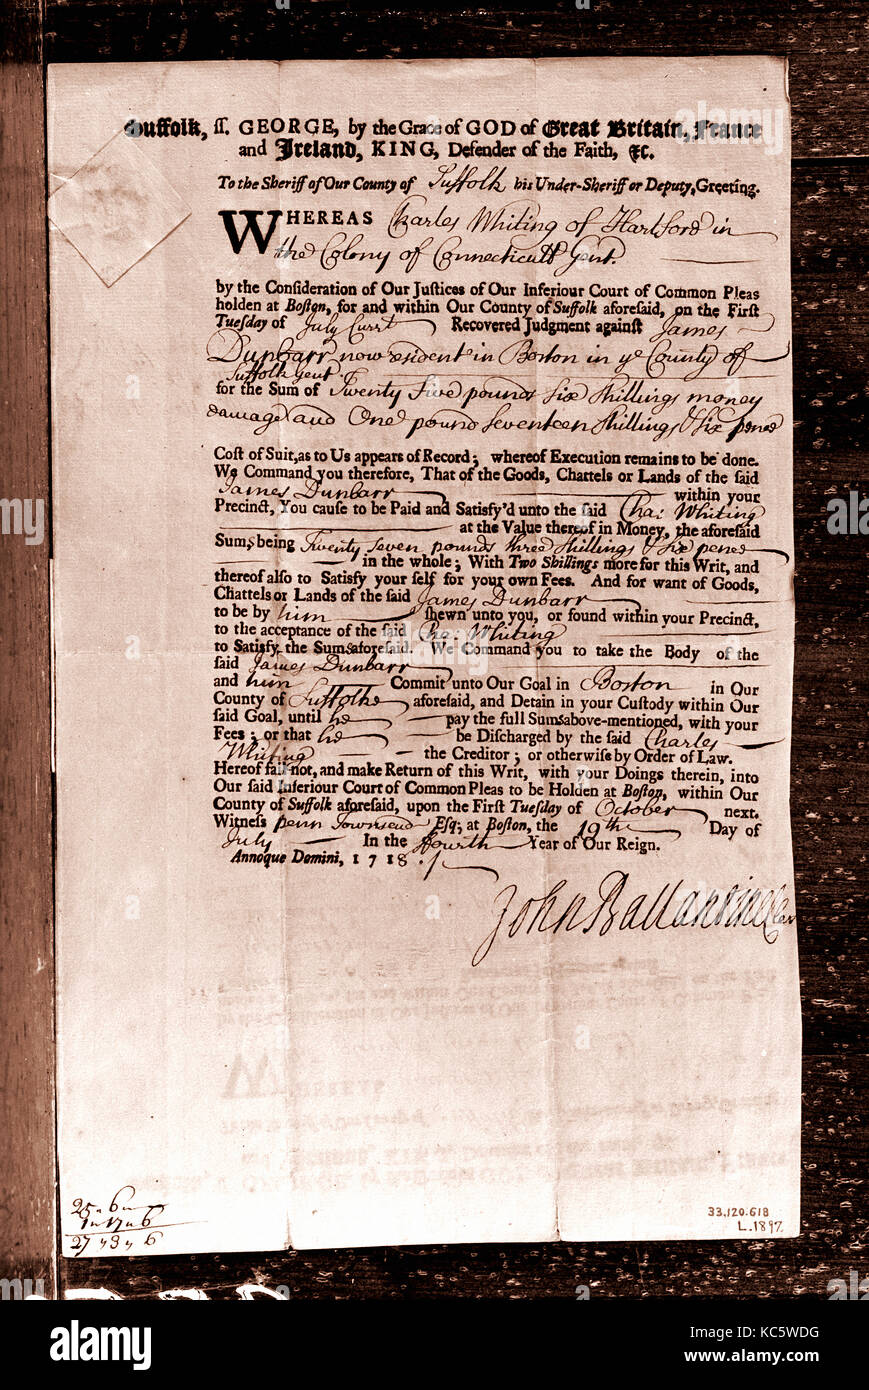 Suffolk, ss. GEORGE, by the Grace of GOD of Great Britain, France
and Ireland, KING, Defender of the Faith, &c.
To the Sheriff of Our County of Suffolk his Under-Sheriff or Deputy, Greeting.
WHEREAS Charles Whiting of Hartford in
the Colony of Connecticutt Gent.
by the Consideration of Our Justices of Our Inferiour Court of Common Pleas
holden at Boston, for and within Our County of Suffolk aforesaid, on the First
Tuesday of July Currt Recovered Judgment against James
Dunbarr now resident in Boston in ye County of
Suffolk Gent
for the Sum of Twenty Five pounds Six Shillings money
damage and One pound Seventeen Shillings & Six pence
Cost of Suit, as to Us appears of Record; whereof Execution remains to be done.
We Command you therefore, That of the Goods, Chattels or Lands of the said
James Dunbarr within your
Precinct, You cause to be Paid and Satisfy'd unto the said Cha: Whiting
at the Value thereof in Money, the aforesaid
Sums, being Twenty Seven pounds three Shillings & Six pence
in the whole; With Two Shillings more for this Writ, and
thereof also to Satisfy your self for your own Fees. And for want of Goods,
Chattels or Lands of the said James Dunbarr
to be by him shewn unto you, or found within your Precinct,
to the acceptance of the said Cha: Whiting
to Satisfy the Sums aforesaid. We Command you to take the Body of the
said James Dunbarr
and him Commit unto Our Goal in Boston in Our
County of Suffolke aforesaid, and Detain in your Custody within Our
said Goal, until he pay the full Sums above-mentioned, with your
Fees; or that he be Discharged by the said Charles
Whiting the Creditor; or otherwise by Order of Law.
Hereof fail not, and make Return of this Writ, with your Doings therein, into
Our said Inferiour Court of Common Pleas to be Holden at Boston, within Our
County of Suffolk aforesaid, upon the First Tuesday of October next.
Witness Penn Townsend Esq; at Boston, the 19th Day of
July In the Fourth Year of Our Reign.
Annoque Domini, 1718.
John Ballantine Cler
25 " 6 "
1 " 17 " 6
27 " 3 " 6
33.120.618
L.1897
alamy
Image ID: KC5WDG
www.alamy.com